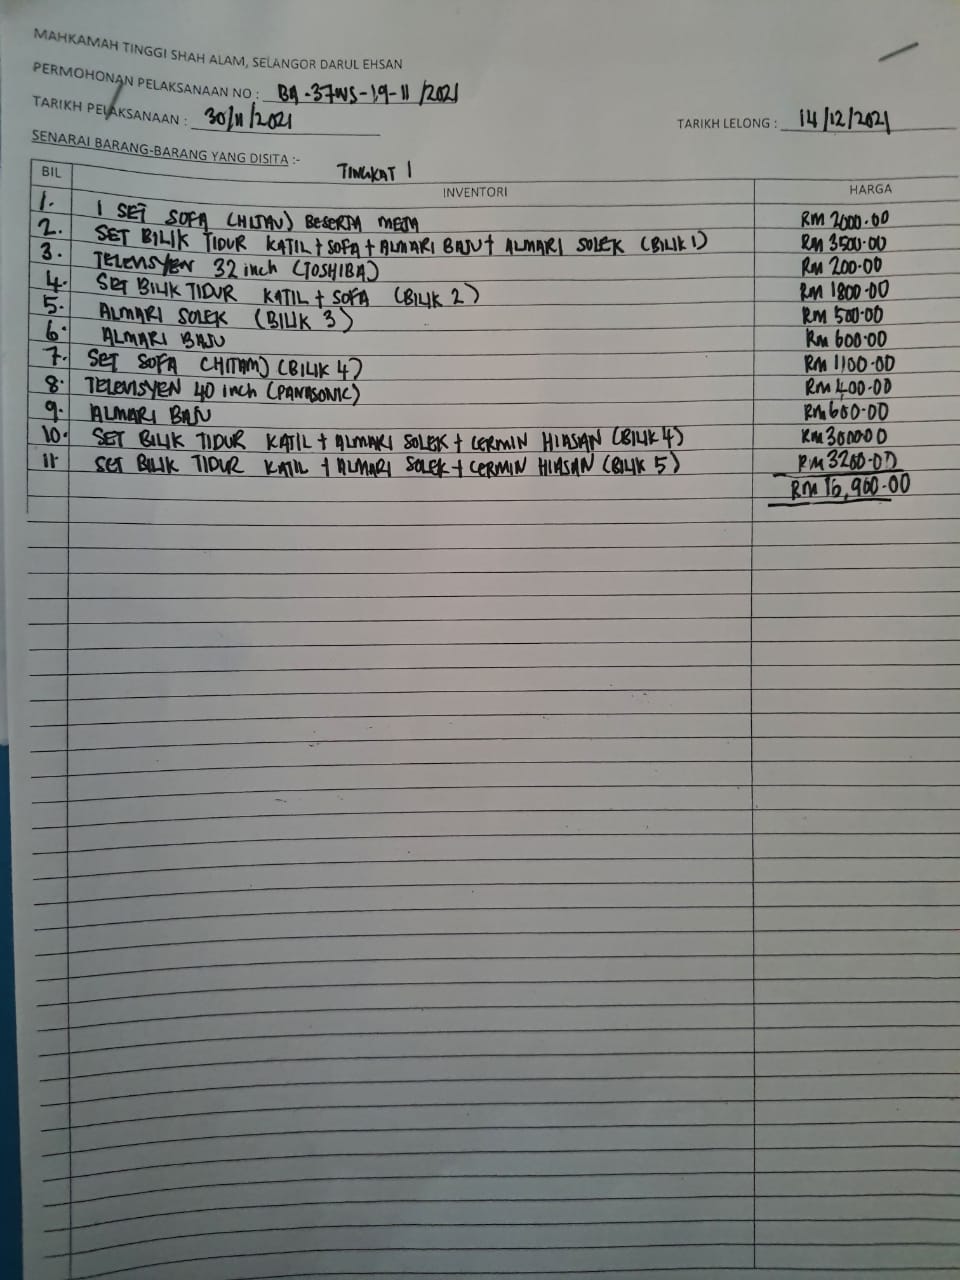 MAHKAMAH TINGGI SHAH ALAM, SELANGOR DARUL EHSAN
PERMOHONAN PELAKSANAAN NO : BA-37WS-19-11/2021
TARIKH PELAKSANAAN : 30/11/2021 TARIKH LELONG : 14/12/2021
SENARAI BARANG-BARANG YANG DISITA :-
TINGKAT 1
BIL INVENTORI HARGA
1. 1 SET SOFA (HIJAU) BESERTA MEJA RM 2000.00
2. SET BILIK TIDUR KATIL + SOFA + ALMARI BAJU + ALMARI SOLEK (BILIK 1) RM 3500.00
3. TELEVISYEN 32 inch (TOSHIBA) RM 200.00
4. SET BILIK TIDUR KATIL + SOFA (BILIK 2) RM 1800.00
5. ALMARI SOLEK (BILIK 3) RM 500.00
6. ALMARI BAJU RM 600.00
7. SET SOFA (HITAM) (BILIK 4) RM 1100.00
8. TELEVISYEN 40 inch (PANASONIC) RM 400.00
9. ALMARI BAJU RM 600.00
10. SET BILIK TIDUR KATIL + ALMARI SOLEK + CERMIN HIASAN (BILIK 4) RM 3000.00
11 SET BILIK TIDUR KATIL + ALMARI SOLEK + CERMIN HIASAN (BILIK 5) RM 3200.00
RM 16,900.00